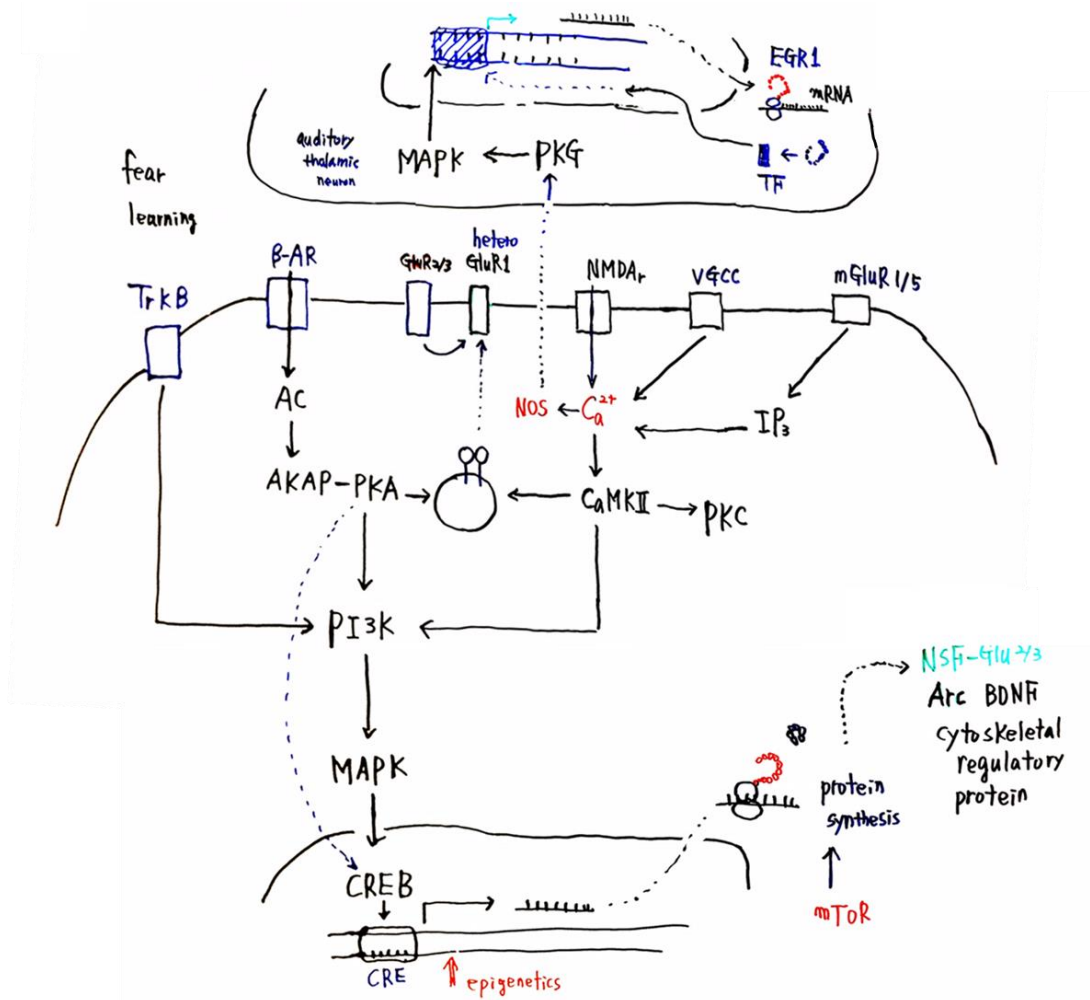 EGR1
mRNA
auditory
thalamic
neuron
MAPK
PKG
TF
fear
learning
hetero
β-AR
GluR2/3
GluR1
NMDAr
VGCC
mGluR1/5
TrkB
AC
NOS
Ca2+
IP3
AKAP-PKA
CaMKII
PKC
PI3K
NSF-Glu2/3
Arc BDNF
cytoskeletal
regulatory
protein
MAPK
protein
synthesis
CREB
mToR
CRE
epigenetics